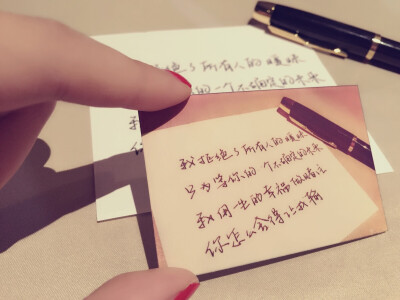 绝了所有人的暧昧
的一个不确定的未来
我拒绝了所有人的暧昧
只为等你的一个不确定的未来
我用一生的幸福做赌注
你怎么舍得让我输